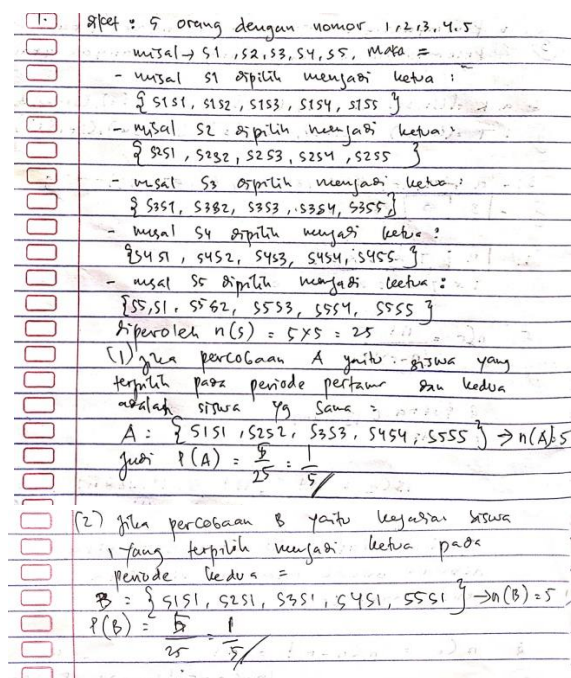 1. diket : 5 orang dengan nomor 1,2,3,4,5
misal → S1, S2, S3, S4, S5, Maka =
- misal S1 dipilih menjadi ketua :
{ S1S1, S1S2, S1S3, S1S4, S1S5 }
- misal S2 dipilih menjadi ketua :
{ S2S1, S2S2, S2S3, S2S4, S2S5 }
- misal S3 dipilih menjadi ketua :
{ S3S1, S3S2, S3S3, S3S4, S3S5 }
- misal S4 dipilih menjadi ketua :
{ S4S1, S4S2, S4S3, S4S4, S4S5 }
- misal S5 dipilih menjadi ketua :
{ S5,S1, S5S2, S5S3, S5S4, S5S5 }
diperoleh n(s) = 5x5 = 25
(1) jika percobaan A yaitu siswa yang
terpilih pada periode pertama dan kedua
adalah siswa yg sama =
A : { S1S1, S2S2, S3S3, S4S4, S5S5 } → n(A)=5
Jadi P(A) = 5/25 = 1/5
(2) Jika percobaan B yaitu kejadian siswa
1 yang terpilih menjadi ketua pada
periode kedua =
B : { S1S1, S2S1, S3S1, S4S1, S5S1 } → n(B)=5
P(B) = 5/25 = 1/5